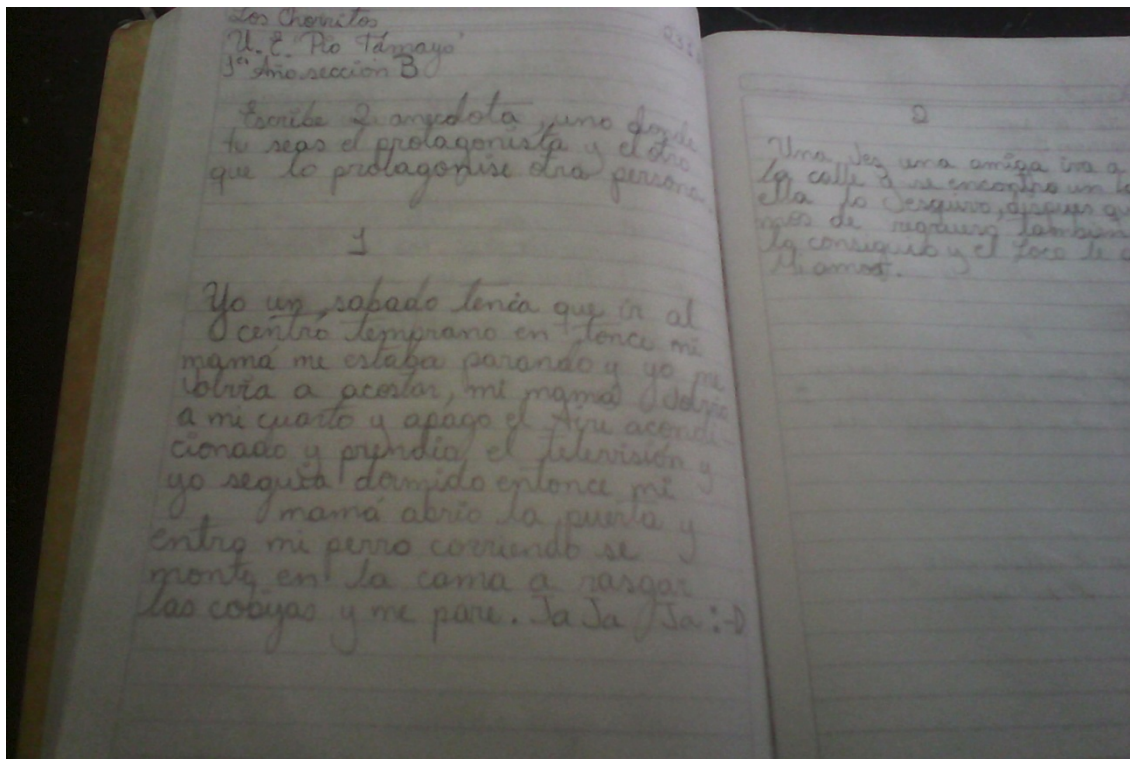 Los Chorritos
U. E. "Pio Tamayo"
1er Año sección B
Escribe 2 anecdota, uno donde
tu seas el protagonista y el otro
que lo protagonise otra persona.
1
Yo un sabado tenia que ir al
centro temprano en tonce mi
mamá me estaba parando y yo me
volvia a acostar, mi mamá volvio
a mi cuarto y apago el Aire acondi-
cionado y prendia el televisión y
yo seguia dormido entonce mi
mamá abrio la puerta y
entro mi perro corriendo se
monto en la cama a rasgar
las cobijas y me pare. Ja Ja Ja :-D
2
Una vez una amiga iva a
la calle y se encontro un
ella lo
de regreso tambien
lo consiguio y el Loco le
Mi amor.